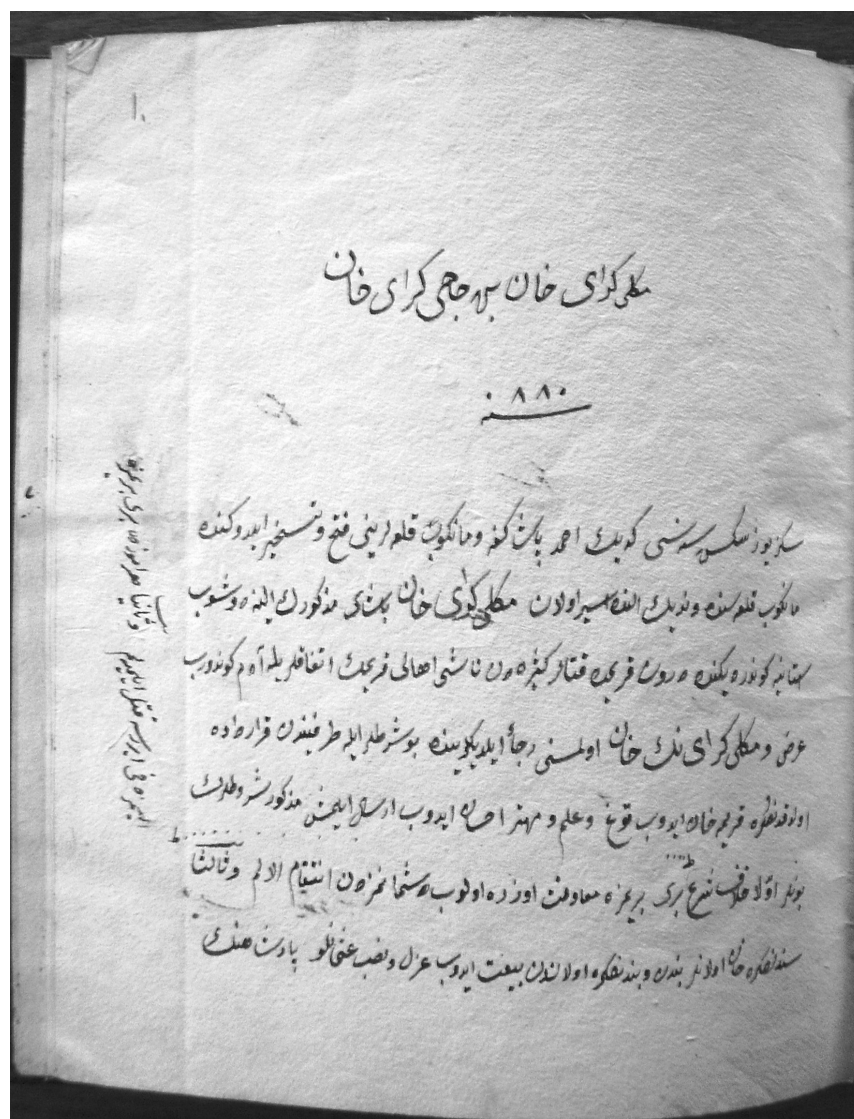 ١٠
منكلى كراى خان بن حاجى كراى خان
سنه ٨٨٠
سكز يوز سكسن سنه سى كديك احمد پاشا كفه و مانكوب قلعه لرينى فتح و تسخير ايلدوكنده
مانكوب قلعه سنده ونديك النده اسير اولان منكلى كراى خان پاشاى مذكورك الينه دوشوب
استانه كوندرديكنده درون قريمده فتنه كثيره دن ناشى اهالى قريمك اتفاقلريله آدم كوندروب
عرض و منكلى كراى نك خان اولمسنى رجا ايلديكلرينده بو شرطلر ايله طرفيندن قرارداده
اولدقدنصكره قريمه خان ايدوب توغ و علم و مهتر احسان ايدوب ارسال ايلمش مذكور شروطلرك
بونلر اولا خلاف شرع برى بريمزه معاونت اوزره اولوب دشمانمزدن انتقام الالم و ثالثا
سندنصكره خان اولانلر بندن و بندنصكره اولاندن بيعت ايدوب عزل و نصب عثمانلو پادشاهنك
و ثانيا هر امورده برى بريمزه